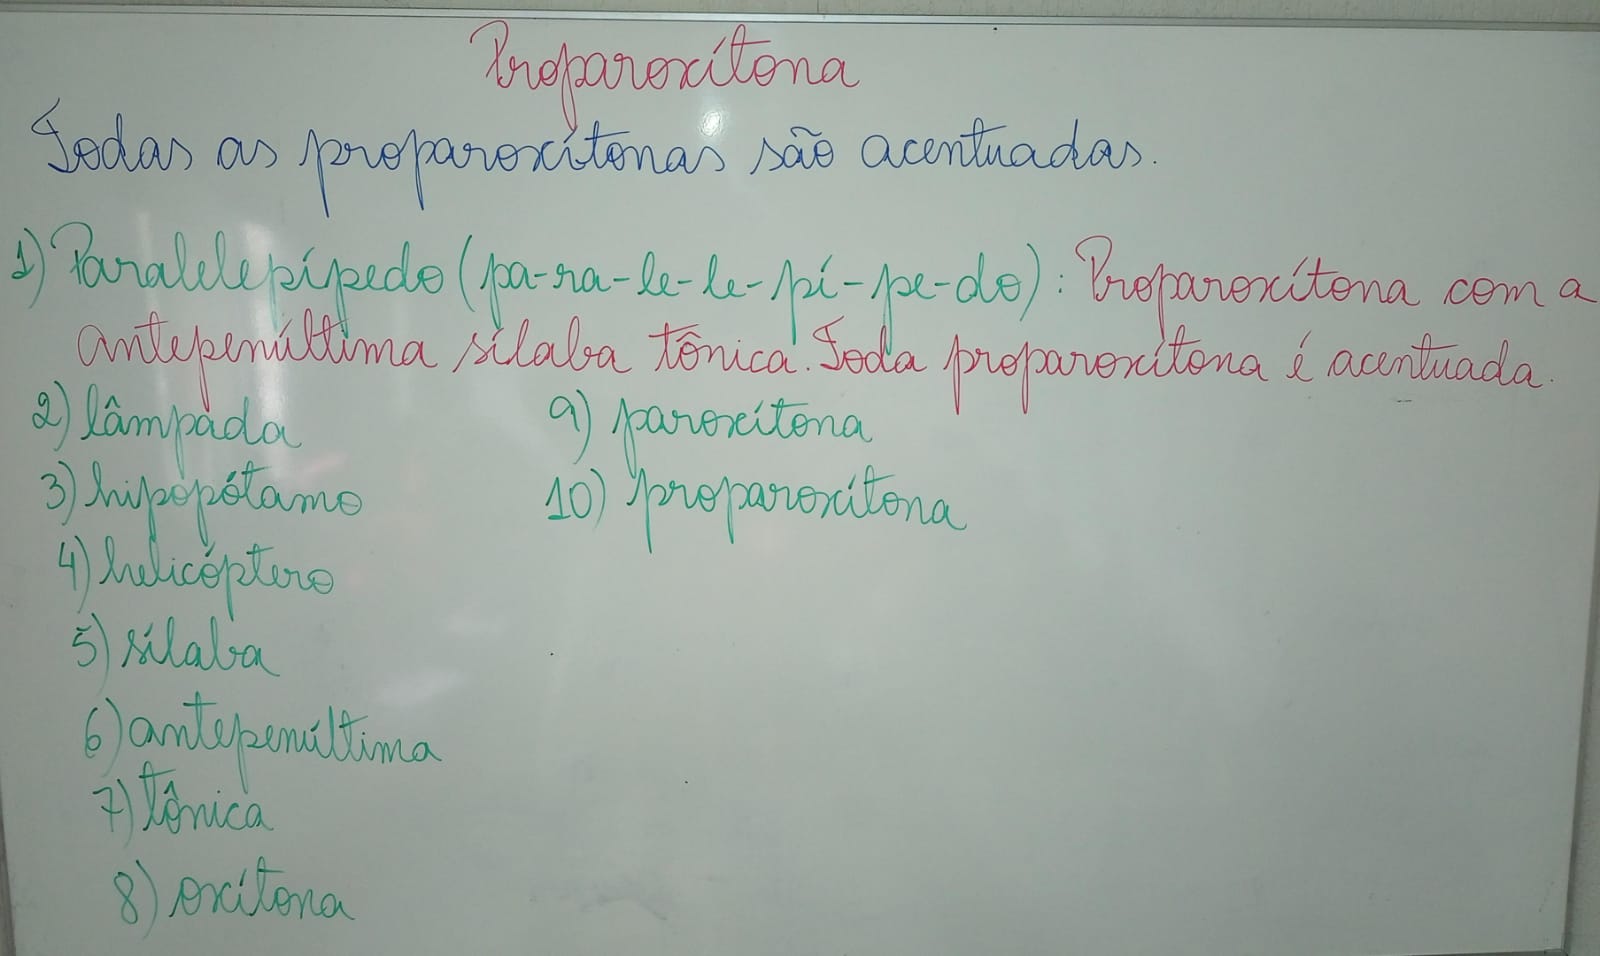 Proparoxítona
Todas as proparoxítonas são acentuadas.
1) Paralelepípedo (pa-ra-le-le-pí-pe-do): Proparoxítona com a
antepenúltima sílaba tônica. Toda proparoxítona é acentuada.
2) lâmpada
3) hipopótamo
4) helicóptero
5) sílaba
6) antepenúltima
7) tônica
8) oxítona
9) paroxítona
10) proparoxítona